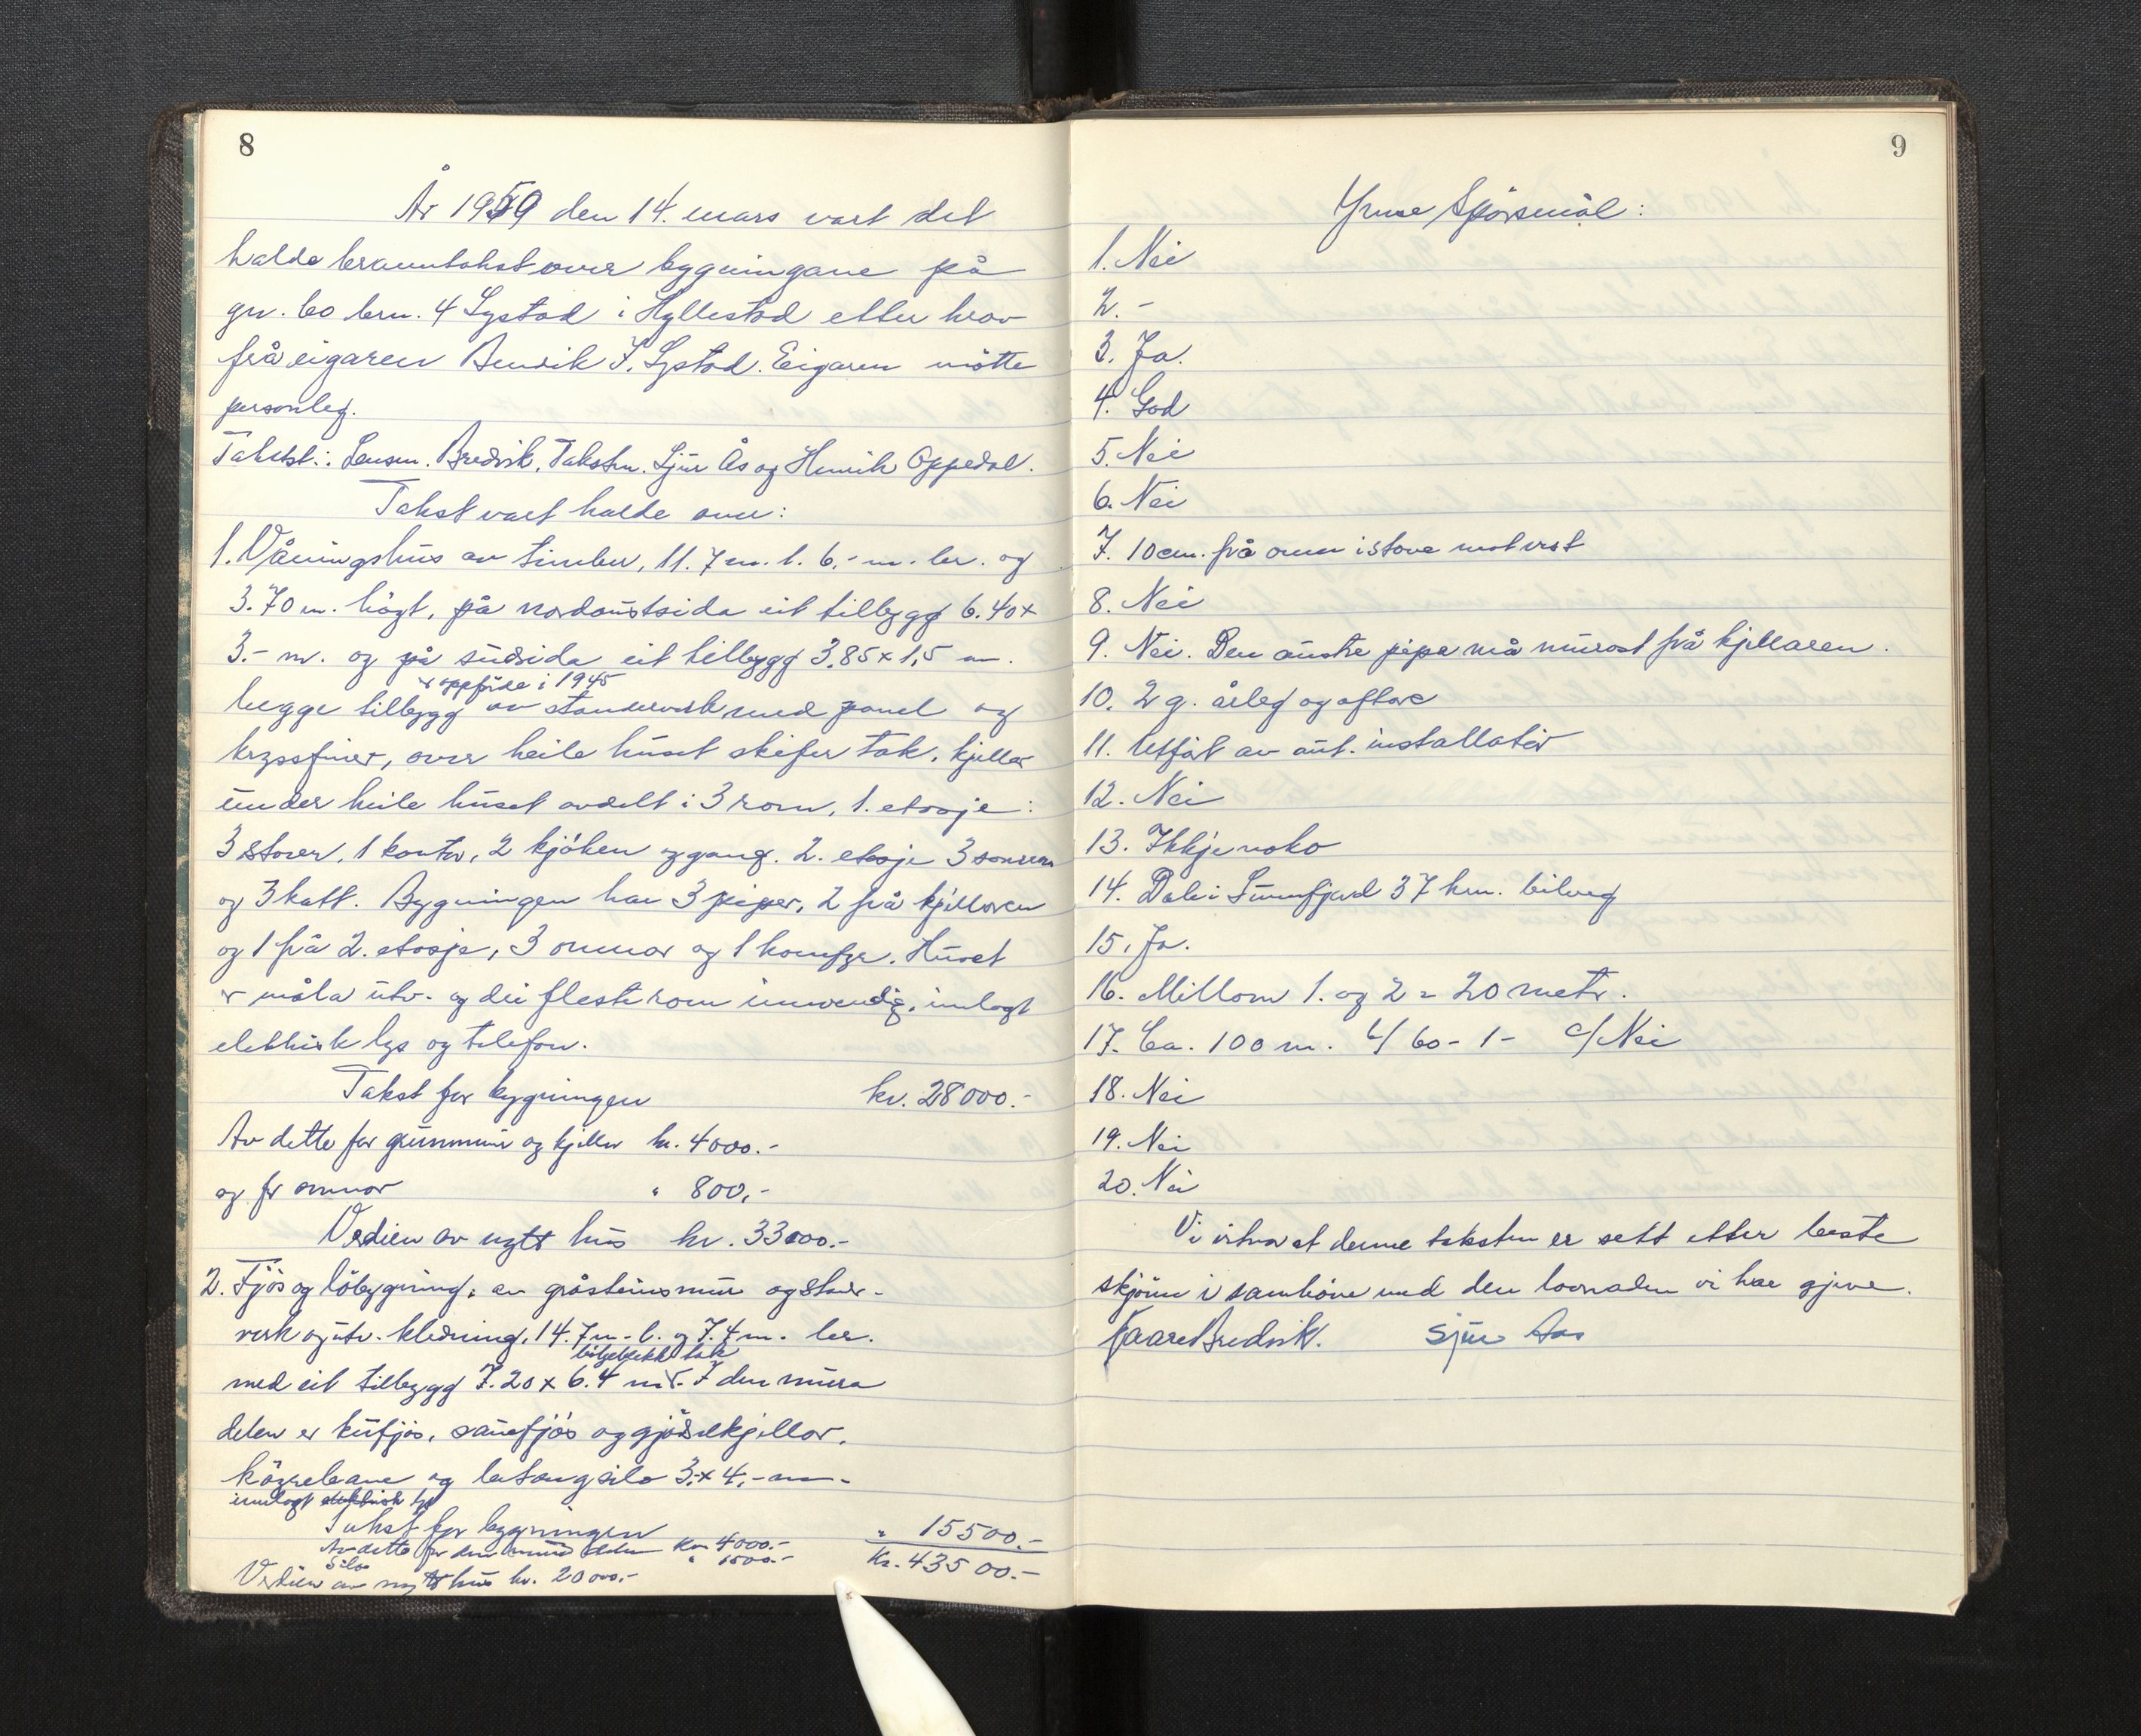 8
År 1959 den 14. mars vart det
halde branntakst over bygningane på
gn. 60 brn. 4 Systad i Hyllestad etter krav
frå eigaren Bendik I. Systad. Eigaren møtte
personleg.
Takstst.: Lensm. Bredvik, Takstm. Sjur Ås og Henrik Oppedal.
Takst vart halde over:
1. Våningshus av timber, 11.7 m. l. 6.- m. br. og
3.70 m. högt, på nordaustsida eit tilbygg 6.40 x
3.- m. og på sudsida eit tilbygg 3.85 x 1,5 m.
er oppförde i 1945
begge tilbygg av standerverk med panel og
kryssfiner, over heile huset skifer tak, kjellar
under heile huset avdelt i 3 rom, 1. etasje:
3 stover, 1 kontor, 2 kjöken og gang. 2. etasje 3 soverom
og 3 kott. Bygningen har 3 piper, 2 frå kjellaren
og 1 frå 2. etasje, 3 omnar og 1 komfyr. Huset
er måla utv. og dei fleste rom innvendig, innlagt
elektrisk lys og telefon.
Takst for bygningen kr. 28000.-
Av dette for grunnmur og kjellar kr. 4000.-
og for omnar " 800,-
Verdien av nytt hus kr. 33000.-
2. Fjös og löbygning, av gråsteinsmur og stander-
verk og utv. kledning, 14.7 m. l. og 7.4 m. br.
bölgeblekk tak
med eit tilbygg 7.20 x 6.4 m. I den mura
delen er kufjös, sauefjös og gjödselkjellar,
köyrebane og betongsilo 3.- x 4.- m.
innlagt elektrisk lys
Takst for bygningen " 15500.-
Av dette for den mura delen kr. 4000.-
Silo " 1500.- Kr. 43500.-
Verdien av nytt hus kr. 20000.-
9
Ymse Spörsmål:
1. Nei
2. -
3. Ja.
4. God
5. Nei
6. Nei
7. 10 cm. frå omn i stove mot vest
8. Nei
9. Nei. Den austre pipe må murast frå kjellaren.
10. 2 g. årleg og oftare
11. Utfört av aut. installatör
12. Nei
13. Ikkje noko
14. Dale i Sunnfjord 37 km. bilveg
15. Ja.
16. Millom 1. og 2 = 20 metr.
17. Ca. 100 m. b/ 60 - 1 - c/ Nei
18. Nei
19. Nei
20. Nei
Vi vitnar at denne taksten er sett etter beste
skjönn i samhöve med den lovnaden vi har gjeve.
Kaare Bredvik. Sjur Aas